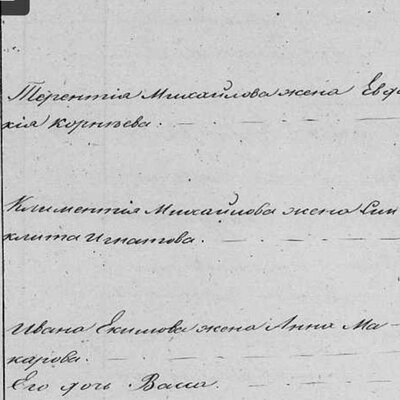 Терентія Михайлова жена Евфа
кія Корнѣева.
Климентія Михайлова жена Син
клита Игнатова.
Ивана Екимова жена Анна Ма-
карова.
Его дочь Васа.